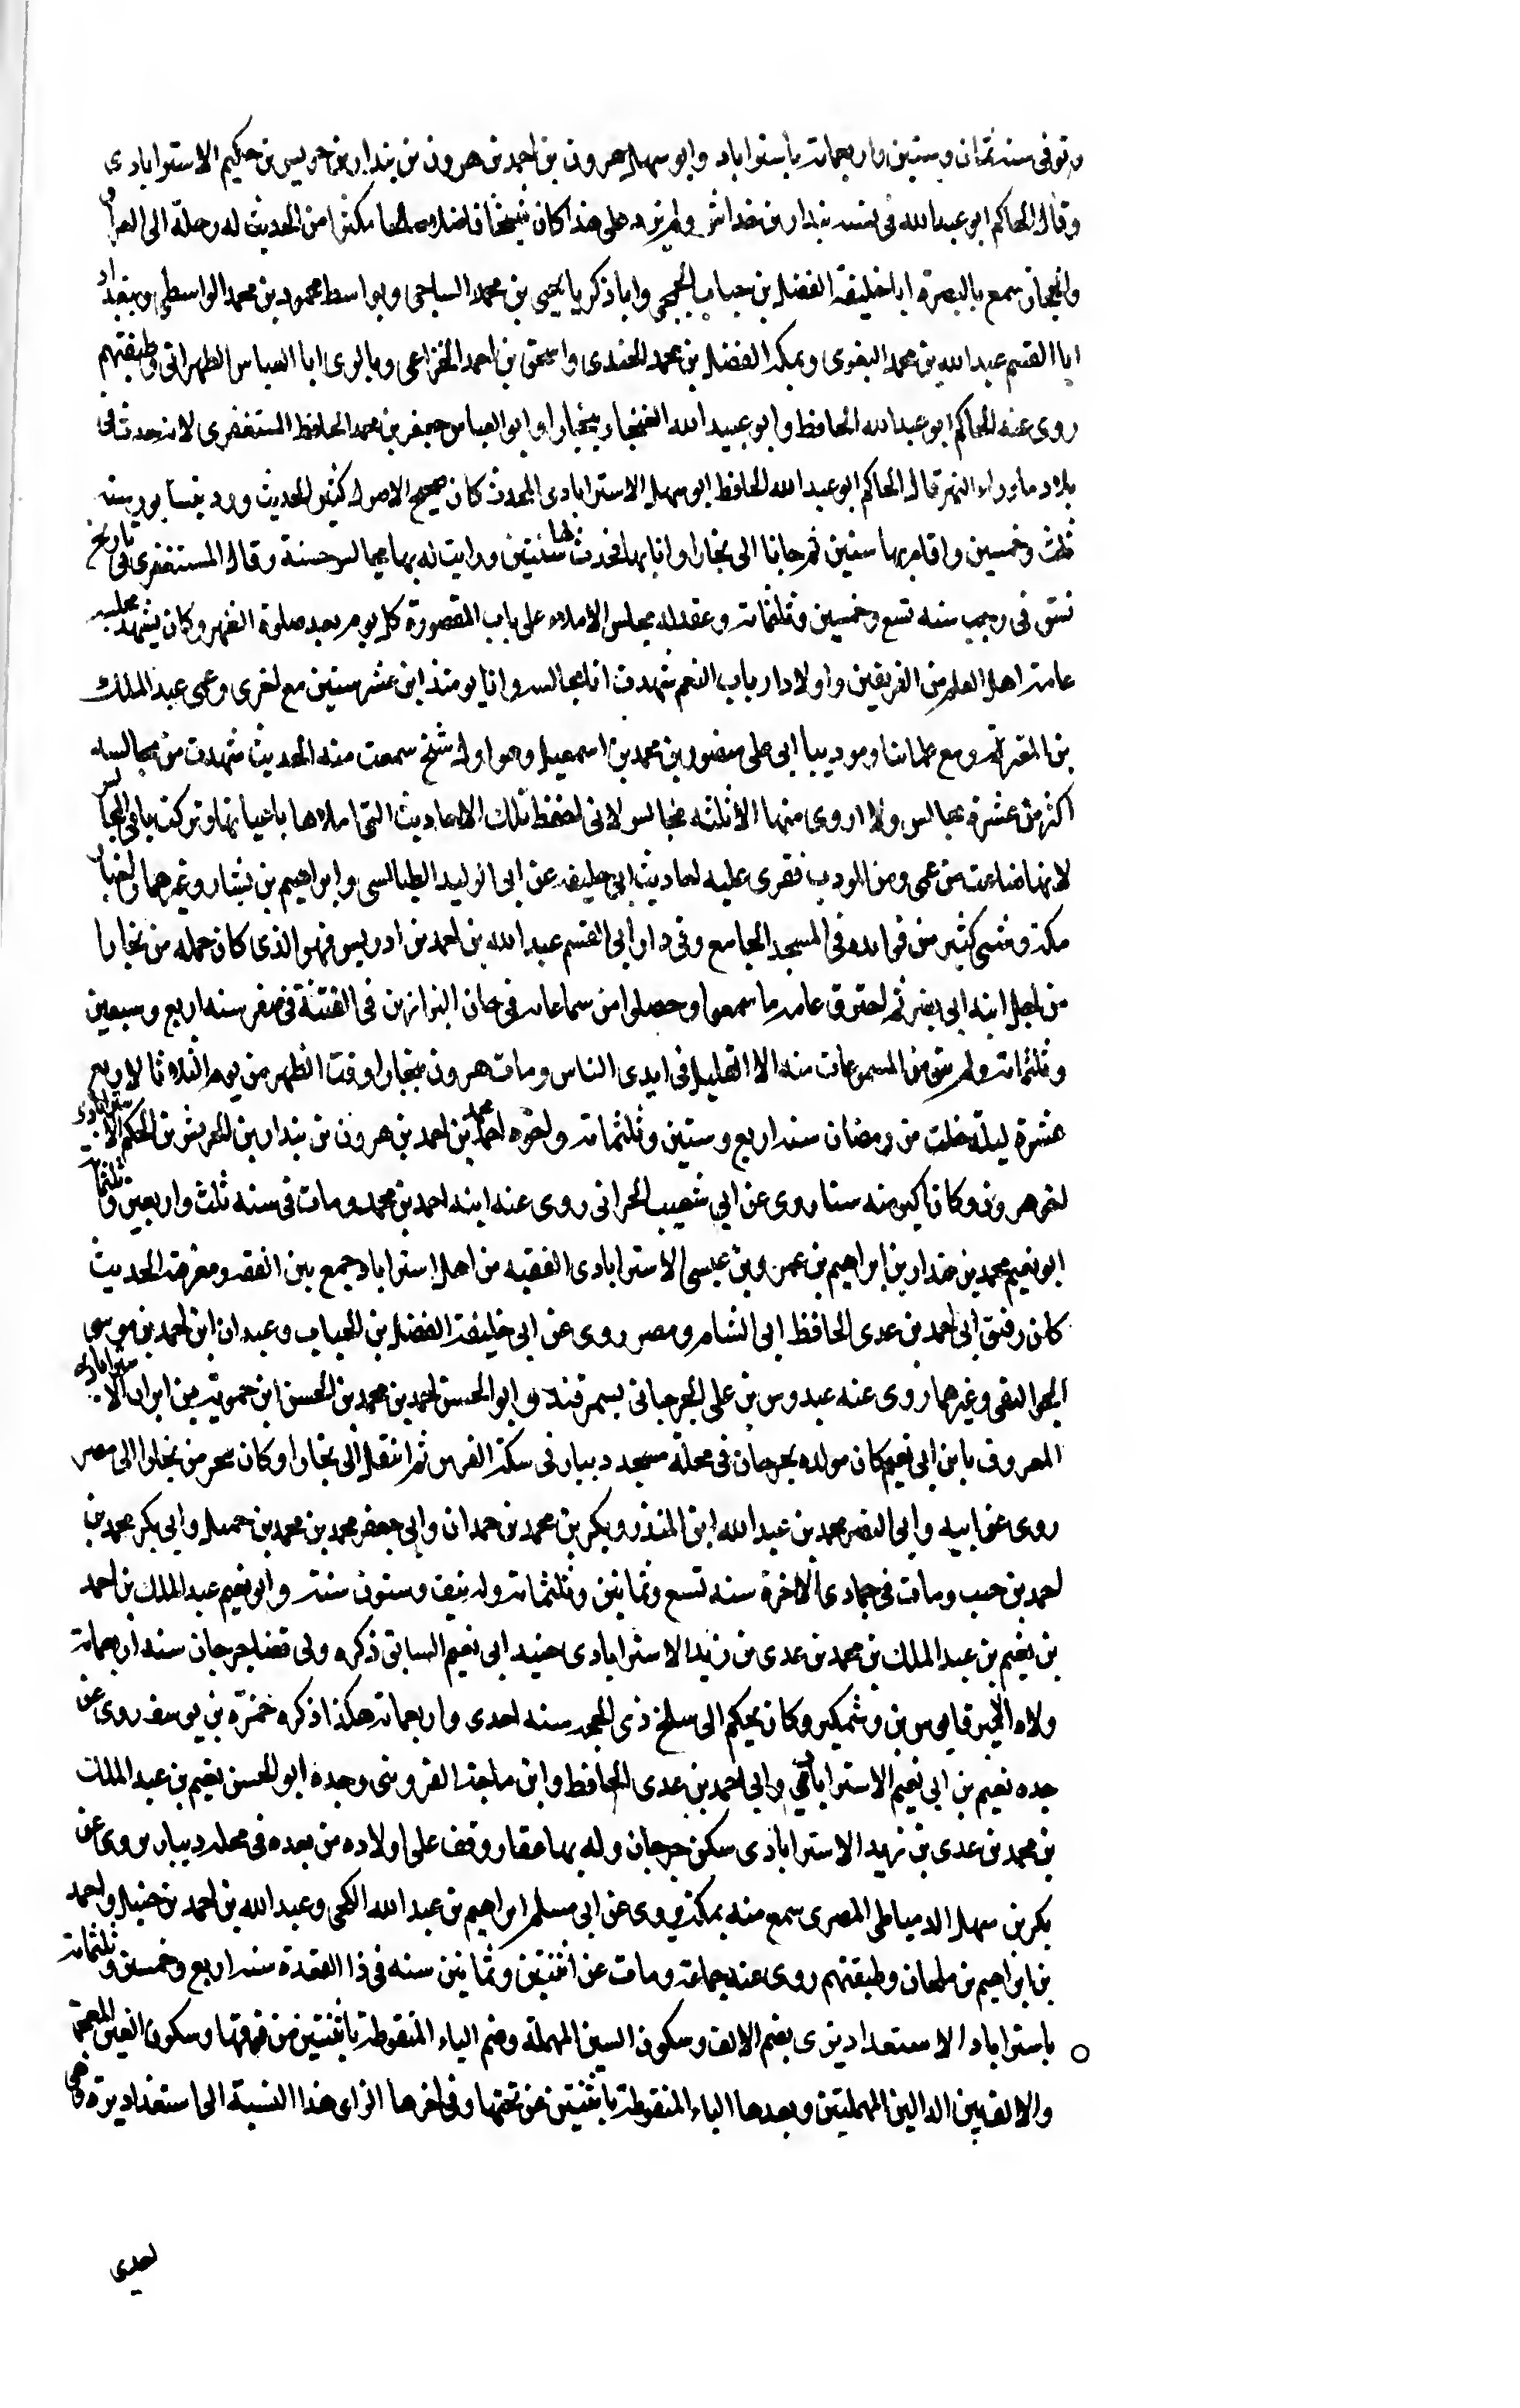 وتوفى سنه ثمان وستين واربعمائة باستراباد وابو سهل هرون بن احمد بن هرون بن بندار بن حريش بن حكيم الاسترابادى
وقال الحاكم ابو عبد الله فى نسبه بندار بن خداش ولم يزد على هذا كان شيخا فاضلا صالحا مكثرا من الحديث له رحلة الى العراق
والحجاز سمع بالبصرة ابا خليفة الفضل بن حباب الجمحى وابا زكريا يحيى بن محمد الساجى وبواسط محمود بن محمد الواسطى وببغداد
ابا القسم عبد الله بن محمد البغوى وبمكه المفضل بن محمد الجندى واسحق بن احمد الخزاعى وبالرى ابا العباس الطهرانى وطبقتهم
روى عنه الحاكم ابو عبد الله الحافظ وابو عبيد الله الغنجار ببخارا وابو العباس جعفر بن محمد الحافظ المستغفرى لانه حدث فى
بلاد ماوراء النهر قال الحاكم ابو عبد الله الحافظ ابو سهل الاسترابادى المحدث كان صحيح الاصول كثير الحديث ورد نيسابور سنه
ثلث وخمسين واقام بها سنين ثم جانا الى بخارا وانا بها فحدث بها سنتين ورايت له بها مجالس حسنة وقال المستغفرى فى تاريخ
نسف فى رجب سنه تسع وخمسين وثلثمائة وعقد له مجلس الاملاء على باب المقصورة كل يوم بعد صلوة الظهر وكان يشهد مجلسه
عامة اهل العلم من الفريقين واولاد ارباب النعم شهدت انا مجالسه وانا يومئذ ابن عشر سنين مع اخرى وعمى عبد الملك
بن المعتز ومع علمائنا ومودبنا ابى على منصور بن محمد بن اسمعيل وهو اول شيخ سمعت منه الحديث شهدت من مجالسه
اكثر من عشرة مجالس ولا اروى منها الا ثلثه مجالس لانى احفظ تلك الاحاديث التى املاها باعيانها وتركت باقى المجالس
لانها ضاعت من عمى ومن المودب فقرى عليه احاديث ابى خليفه عن ابى الوليد الطيالسى وابراهيم بن بشار وغيرهما واخبار
مكة وشى كثير من فوائده فى المسجد الجامع وفى دار ابى القسم عبد الله بن احمد بن ادريس فهو الذى كان حمله من بخارا
من اجل ابنه ابى نصر ثم احترق عامه ما سمعوا وحصلوا من سماعاته فى خان البزازين فى الفتنة فى صفر سنه اربع وسبعين
وثلثمائة ولم يبق من المسموعات منه الا القليل فى ايدى الناس ومات هرون ببخارا وقت الظهر من يوم الثلاثا لاربع
عشرة ليلة خلت من رمضان سنه اربع وستين وثلثمائة واخوه احمد محمد بن احمد بن هرون بن بندار بن الحريش بن الحكم الاسترابادى
اخو هرون وكان اكبر منه سنا روى عن ابى شعيب الحرانى روى عنه ابنه احمد بن محمد ومات فى سنه ثلث واربعين وثلثمائة
ابو نعيم محمد بن بندار بن ابراهيم بن عمر وبن عيسى الاسترابادى الفقيه من اهل استراباد جمع بين الفقه ومعرفة الحديث
كان رفيق ابى احمد بن عدى الحافظ الى الشام ومصر روى عن ابى خليفة الفضل بن الحباب وعبدان ابن احمد بن موسى
الجواليقى وغيرهما روى عنه عبدوس بن على الجرجانى بسمرقند وابو الحسن احمد بن محمد بن الحسن ابن حمويه بن ابراك الاسترابادى
المعروف بابن ابى نعيم كان مولده بجرجان فى محلة مسجد دينار فى سكة الفرس ثم انتقل الى بخارا وكان يتجر من بخارا الى مصر
روى عن ابيه وابى النصر محمد بن عبد الله ابن المنذر وبكر بن محمد بن حمدان وابى جعفر محمد بن محمد بن جميل وابى بكر محمد بن
احمد بن حب ومات فى جمادى الاخرة سنه تسع وثمانين وثلثمائة وله نيف وستون سنة وابو نعيم عبد الملك بن احمد
بن نعيم بن عبد الملك بن محمد بن عدى بن زيد الاسترابادى حفيد ابى نعيم السابق ذكره ولى قضا جرجان سنه اربعمائة
ولاه الامير قابوس بن وشمكير وكان يحكم الى سلخ ذى الحجه سنه احدى واربعمائة هكذا ذكره حمزة بن يوسف روى عن
جده نعيم بن ابى نعيم الاسترابادى وابى احمد بن عدى الحافظ وابن ماجة القزوينى وجده ابو الحسن نعيم بن عبد الملك
بن محمد بن عدى بن زيد الاسترابادى سكن جرجان وله بها عقار وقف على اولاده من بعده فى محله دينار روى عن
بكر بن سهل الدمياطى المصرى سمع منه بمكة وروى عن ابى مسلم ابراهيم بن عبد الله الكجى وعبد الله بن احمد بن حنبل واحمد
بن ابراهيم بن ملحان وطبقتهم روى عنه جماعة ومات عن اثنتين وثمانين سنه فى ذا القعدة سنه اربع وخمسين وثلثمائة
باستراباد الاستغداديزى بضم الالف وسكون السين المهملة وضم التاء المنقوطة باثنتين من فوقها وسكون الغين المعجمة
والالف بين الدالين المهملتين وبعدها الياء المنقوطة باثنتين من تحتها وفى اخرها الزاى هذا النسبة الى استغداديزه وهى
احدى